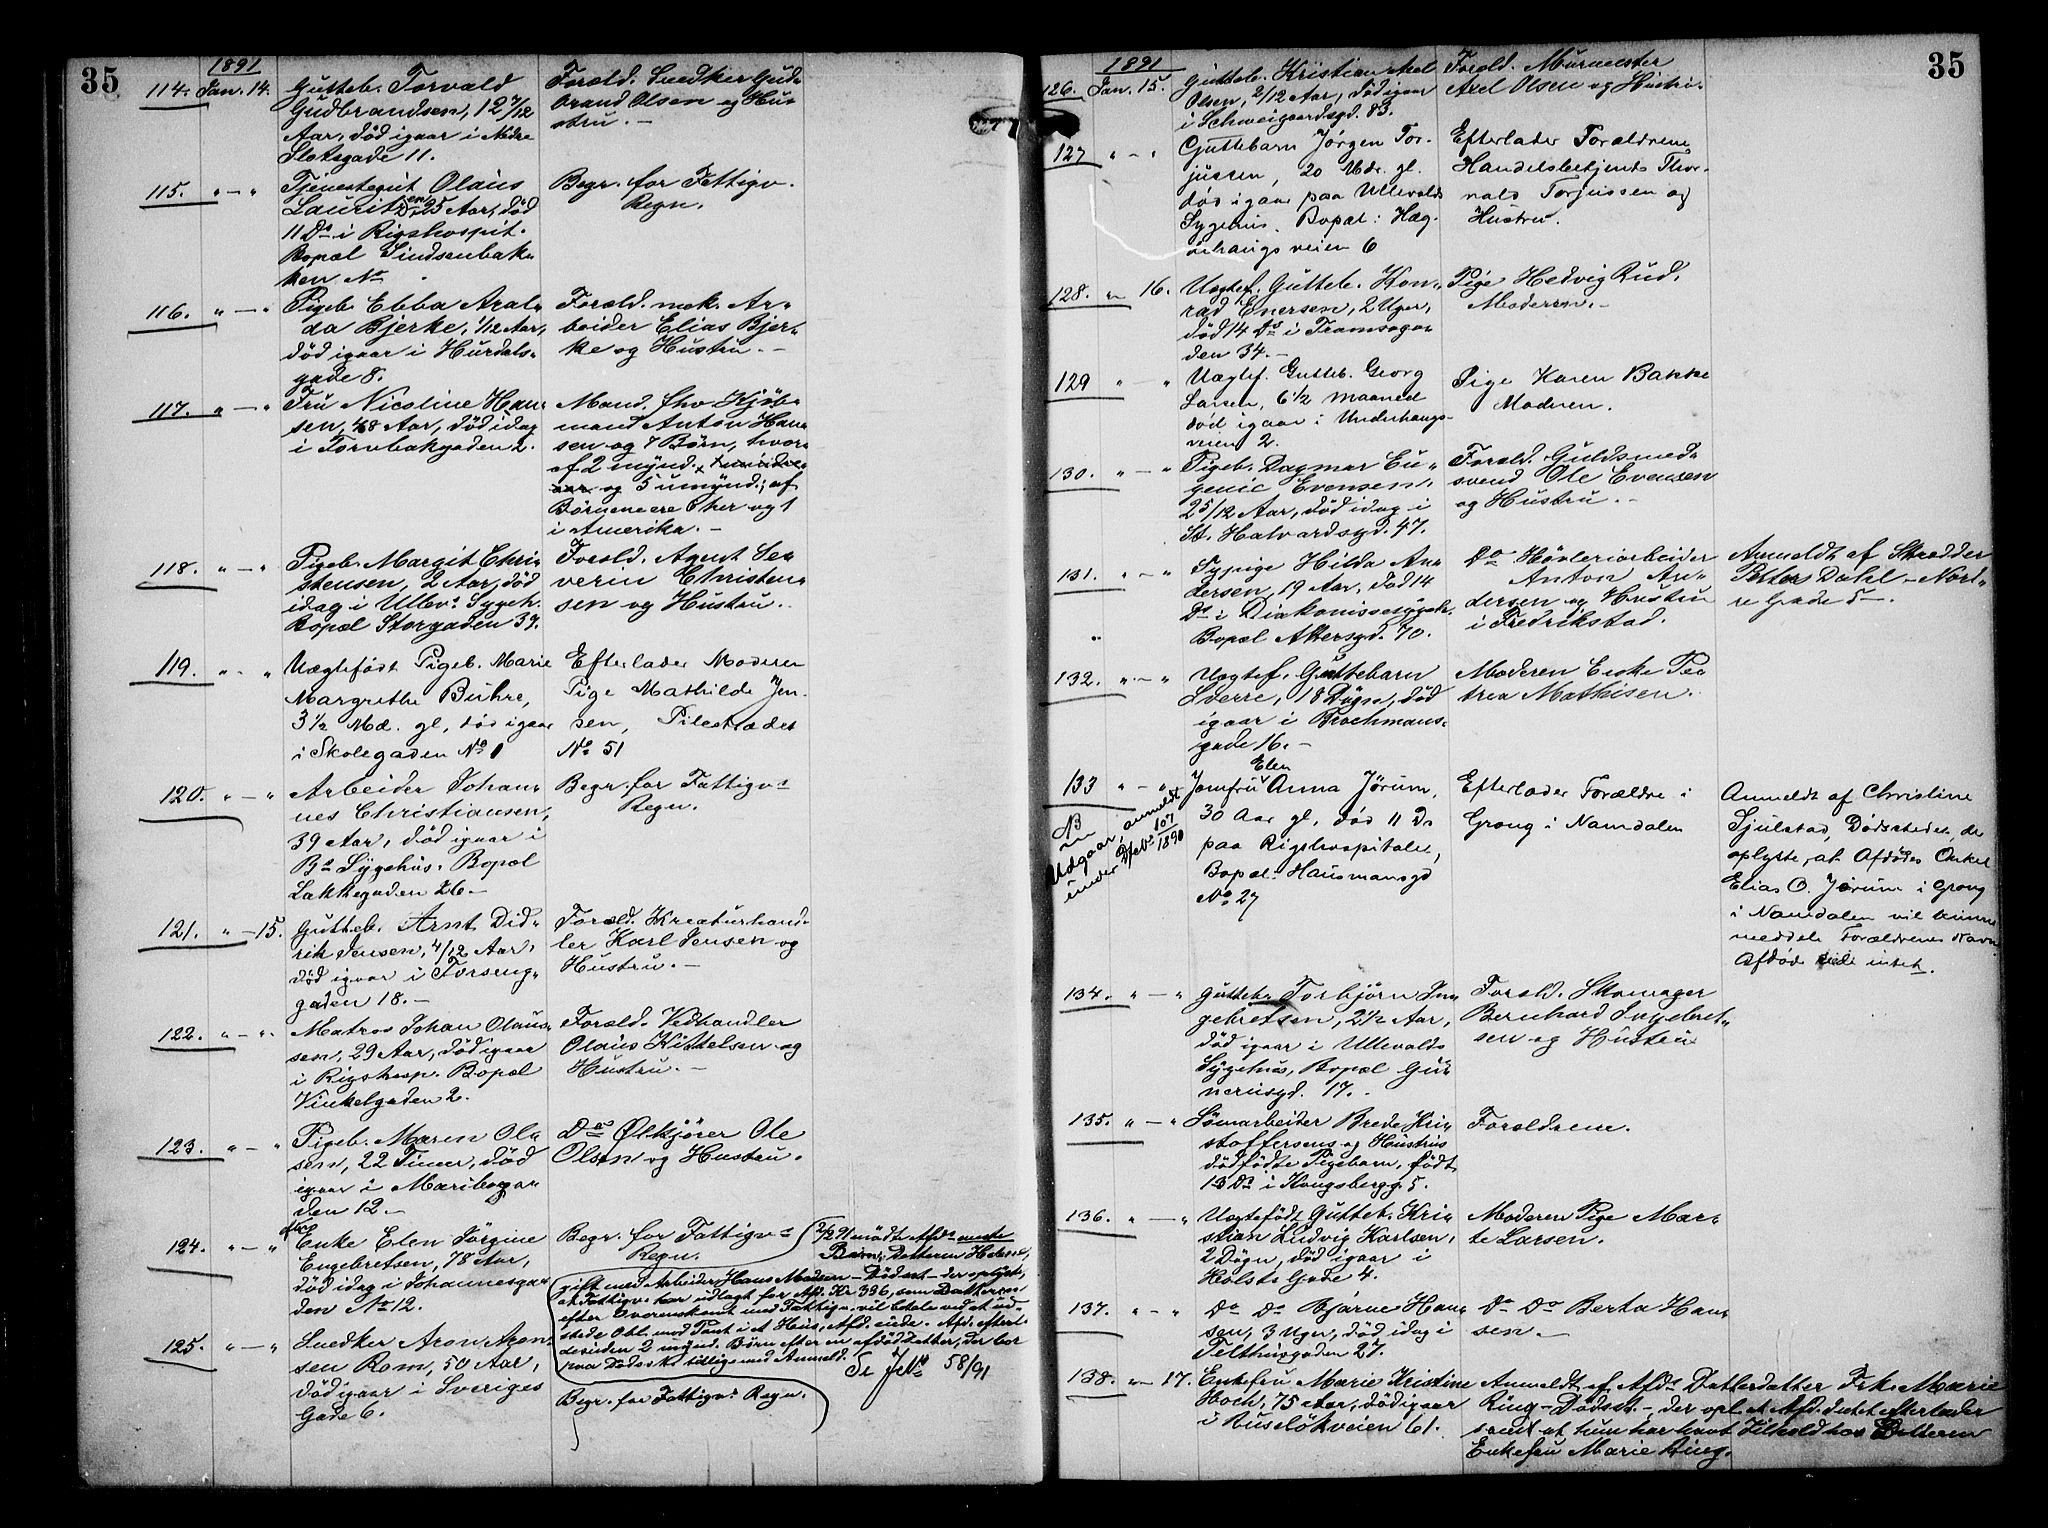 35
1891
114. Jan. 14.
Gutteb. Torvald
Gudbrandsen, 12 7/12
Aar, död igaar i Nedre
Slotsgade 11.
Foræld. Snedker Gud-
brand Olsen og Hus-
stru. –
115. " – "
Tjenestegut Olaus
Lauritzen 25 Aar, död
11 Ds i Rigshospit.
Bopæl Sindsenbak-
ken No
Begr. for Fattigv.
Regn.
116. " – "
Pigeb. Ebba Aral-
da Bjerke, 1/12 Aar,
död igaar i Hurdals-
gade 8.
Foræld. nok. Ar-
beider Elias Bjer-
ke og Hustru. –
117. " – "
Fru Nicoline Han-
sen, 48 Aar, död idag
i Tornbakgaden 2.
Mand. fhv Kjöb-
mand Anton Han-
sen og 7 Börn, hvor-
af 2 mynd.
og 5 umynd.; af
Börnene ere 6 her og 1
i Amerika. –
118. " – "
Pigeb. Margit Chri-
stensen, 2 Aar, död
idag i Ullev. Sygeh.
Bopæl Storgaden 39.
Foræld. Agent Se-
verin Christen-
sen og Hustru.
119. " – "
Uægtefödt Pigeb. Marie
Margrethe Buhre,
3 1/2 Md. gl, död igaar
i Skolegaden No 1
Efterlader Moderen
Pige Mathilde Jen-
sen, Pilestrædet
No 51
120. " – "
Arbeider Johan-
nes Christiansen,
39 Aar, död igaar i
Bs Sygehus. Bopæl
Lakkegaden 26. –
Begr. for Fattigv.
Regn.
121. " – 15.
Gutteb. Arnt Did-
rik Jensen, 4/12 Aar,
död igaar i Torseng-
gaden 18. –
Foræld. Kreaturhand-
ler Karl Jensen og
Hustru. –
122. " – "
Matros Johan Olaus-
sen, 29 Aar, död igaar
i Rigshosp. Bopæl
Vinkelgaden 2.
Foræld. Vedhandler
Olaus Kittelsen og
Hustru. –
123. " – "
Pigeb. Maren Ol-
sen, 22 Timer, död
igaar i Mariboga-
den 12. –
Do Ölkjörer Ole
Olsen og Hustru.
124. " – "
Enke Elen Jörgine
Engebretsen, 78 Aar,
död idag i Johannesga-
den No 12.
Begr. for Fattigv.
Regn.
2/2 91 mödte Afds eneste
Barn, Datteren Helene,
gift med Arbeider Hans Madsen – Dödsst – der oplyste,
at Fattigv. har udlagt for Afd. Kr 396, som Datteren
efter Overenskomst med Fattigv. vil betale ved at ud-
stede Obl. mod Pant i et Hus, Afd. eiede. Afd. efterl.
desuden 2 mynd. Börn efter en afdöd Datter, der bor
paa Dödsst. tillige med Anmeld.
Se JNo 58/91
125. " – "
Snedker Aron Aron-
sen Rom, 50 Aar,
död igaar i Sveriges
Gade 6.
Begr. for Fattigvs Regn.
35
1891
126. Jan. 15.
Gutteb. Kristian Axel
Olsen, 2/12 Aar, död igaar
i Schweigaardsgd. 83.
Foræld. Murmester
Axel Olsen og Hustru.
127 " – "
Guttebarn Jörgen Tor-
jussen, 20 Mdr. gl.
död igaar paa Ullevolds
Sygehus. Bopæl: Hæg-
dehaugsveien 6
Efterlader Forældrene
Handelsbetjent Thor-
vald Torjussen og
Hustru.
128. " 16.
Uægtef. Gutteb. Kon-
rad Enersen, 2 Uger,
död 14 Ds i Tromsøga-
den 34. –
Pige Hedvig Rud.
Moderen. –
129 " – "
Uægtef. Gutteb. Georg
Larsen, 6 1/2 Maaned
död igaar i Underhaugs-
veien 2.
Pige Karen Bakke
Moderen.
130. " – "
Pigeb. Dagmar Eu-
genie Evensen,
2 5/12 Aar, död idag i
St. Halvardsgd. 47.
Foræld. Guldsmed-
svend Ole Evensen
og Hustru. –
131. " – "
Sypige Hilda An-
dersen, 19 Aar, död 14
Ds i Diakonissesygeh.
Bopæl Akersgd. 70.
Do Hövleriarbeider
Anton An-
dersen og Hustru
i Fredrikstad.
Anmeldt af Skrædder
Petter Dahl – Nord-
re Gade 5 –.
132. " – "
Uægtef. Guttebarn
Sverre, 18 Dögn, död
igaar i Brochmans-
gade 16. –
Moderen Enke Pe-
trea Mathisen.
133 " – "
Jomfru Elen Anna Jörum,
30 Aar gl, död 11 Ds
paa Rigshospitalet,
Bopæl: Hausmansgd
No 27
NB
Udgaar, anmeldt
under JNo 107
1890
Efterlader Forældre i
Grong i Namdalen
Anmeldt af Christine
Sjulstad, Dödsstedet, der
oplyste, at Afdödes Onkel
Elias O. Jörum i Grong
i Namdalen vil kunne
meddele Forældrenes Navn
Afdöde eiede intet.
134. " – "
Gutteb. Torbjörn In-
gebretsen, 2 1/2 Aar,
död igaar i Ullevolds
Sygehus, Bopæl Gun-
neriusgd. 17. –
Foræld. Skomager
Bernhard Ingebret-
sen og Hustru
135. " – "
Sömarbeider Brede Kri-
stoffersens og Hustrus
dödfödte Pigebarn, födt
13 Ds i Kongsbergg. 5.
Forældrene.
136. " – "
Uægtefödt Gutteb. Kri-
stian Ludvig Karlsen,
2 Dögn, död igaar i
Holsts Gade 4.
Moderen Pige Mar-
te Larsen.
137. " – "
Do Do Bjarne Han-
sen, 3 Uger, död idag i
Telthusgaden 27.
Do Do Berta Han-
sen. –
138. " – 17.
Enkefru Marie Kristine
Hoch, 75 Aar, död igaar
i Ruselökveien 61.
Anmeldt af Afds Datterdatter Frk. Marie
Ring – Dödsst. – der opl. at Afd. intet efterlader
samt at hun har havt Tilhold hos Datteren
Enkefru Marie Ring.